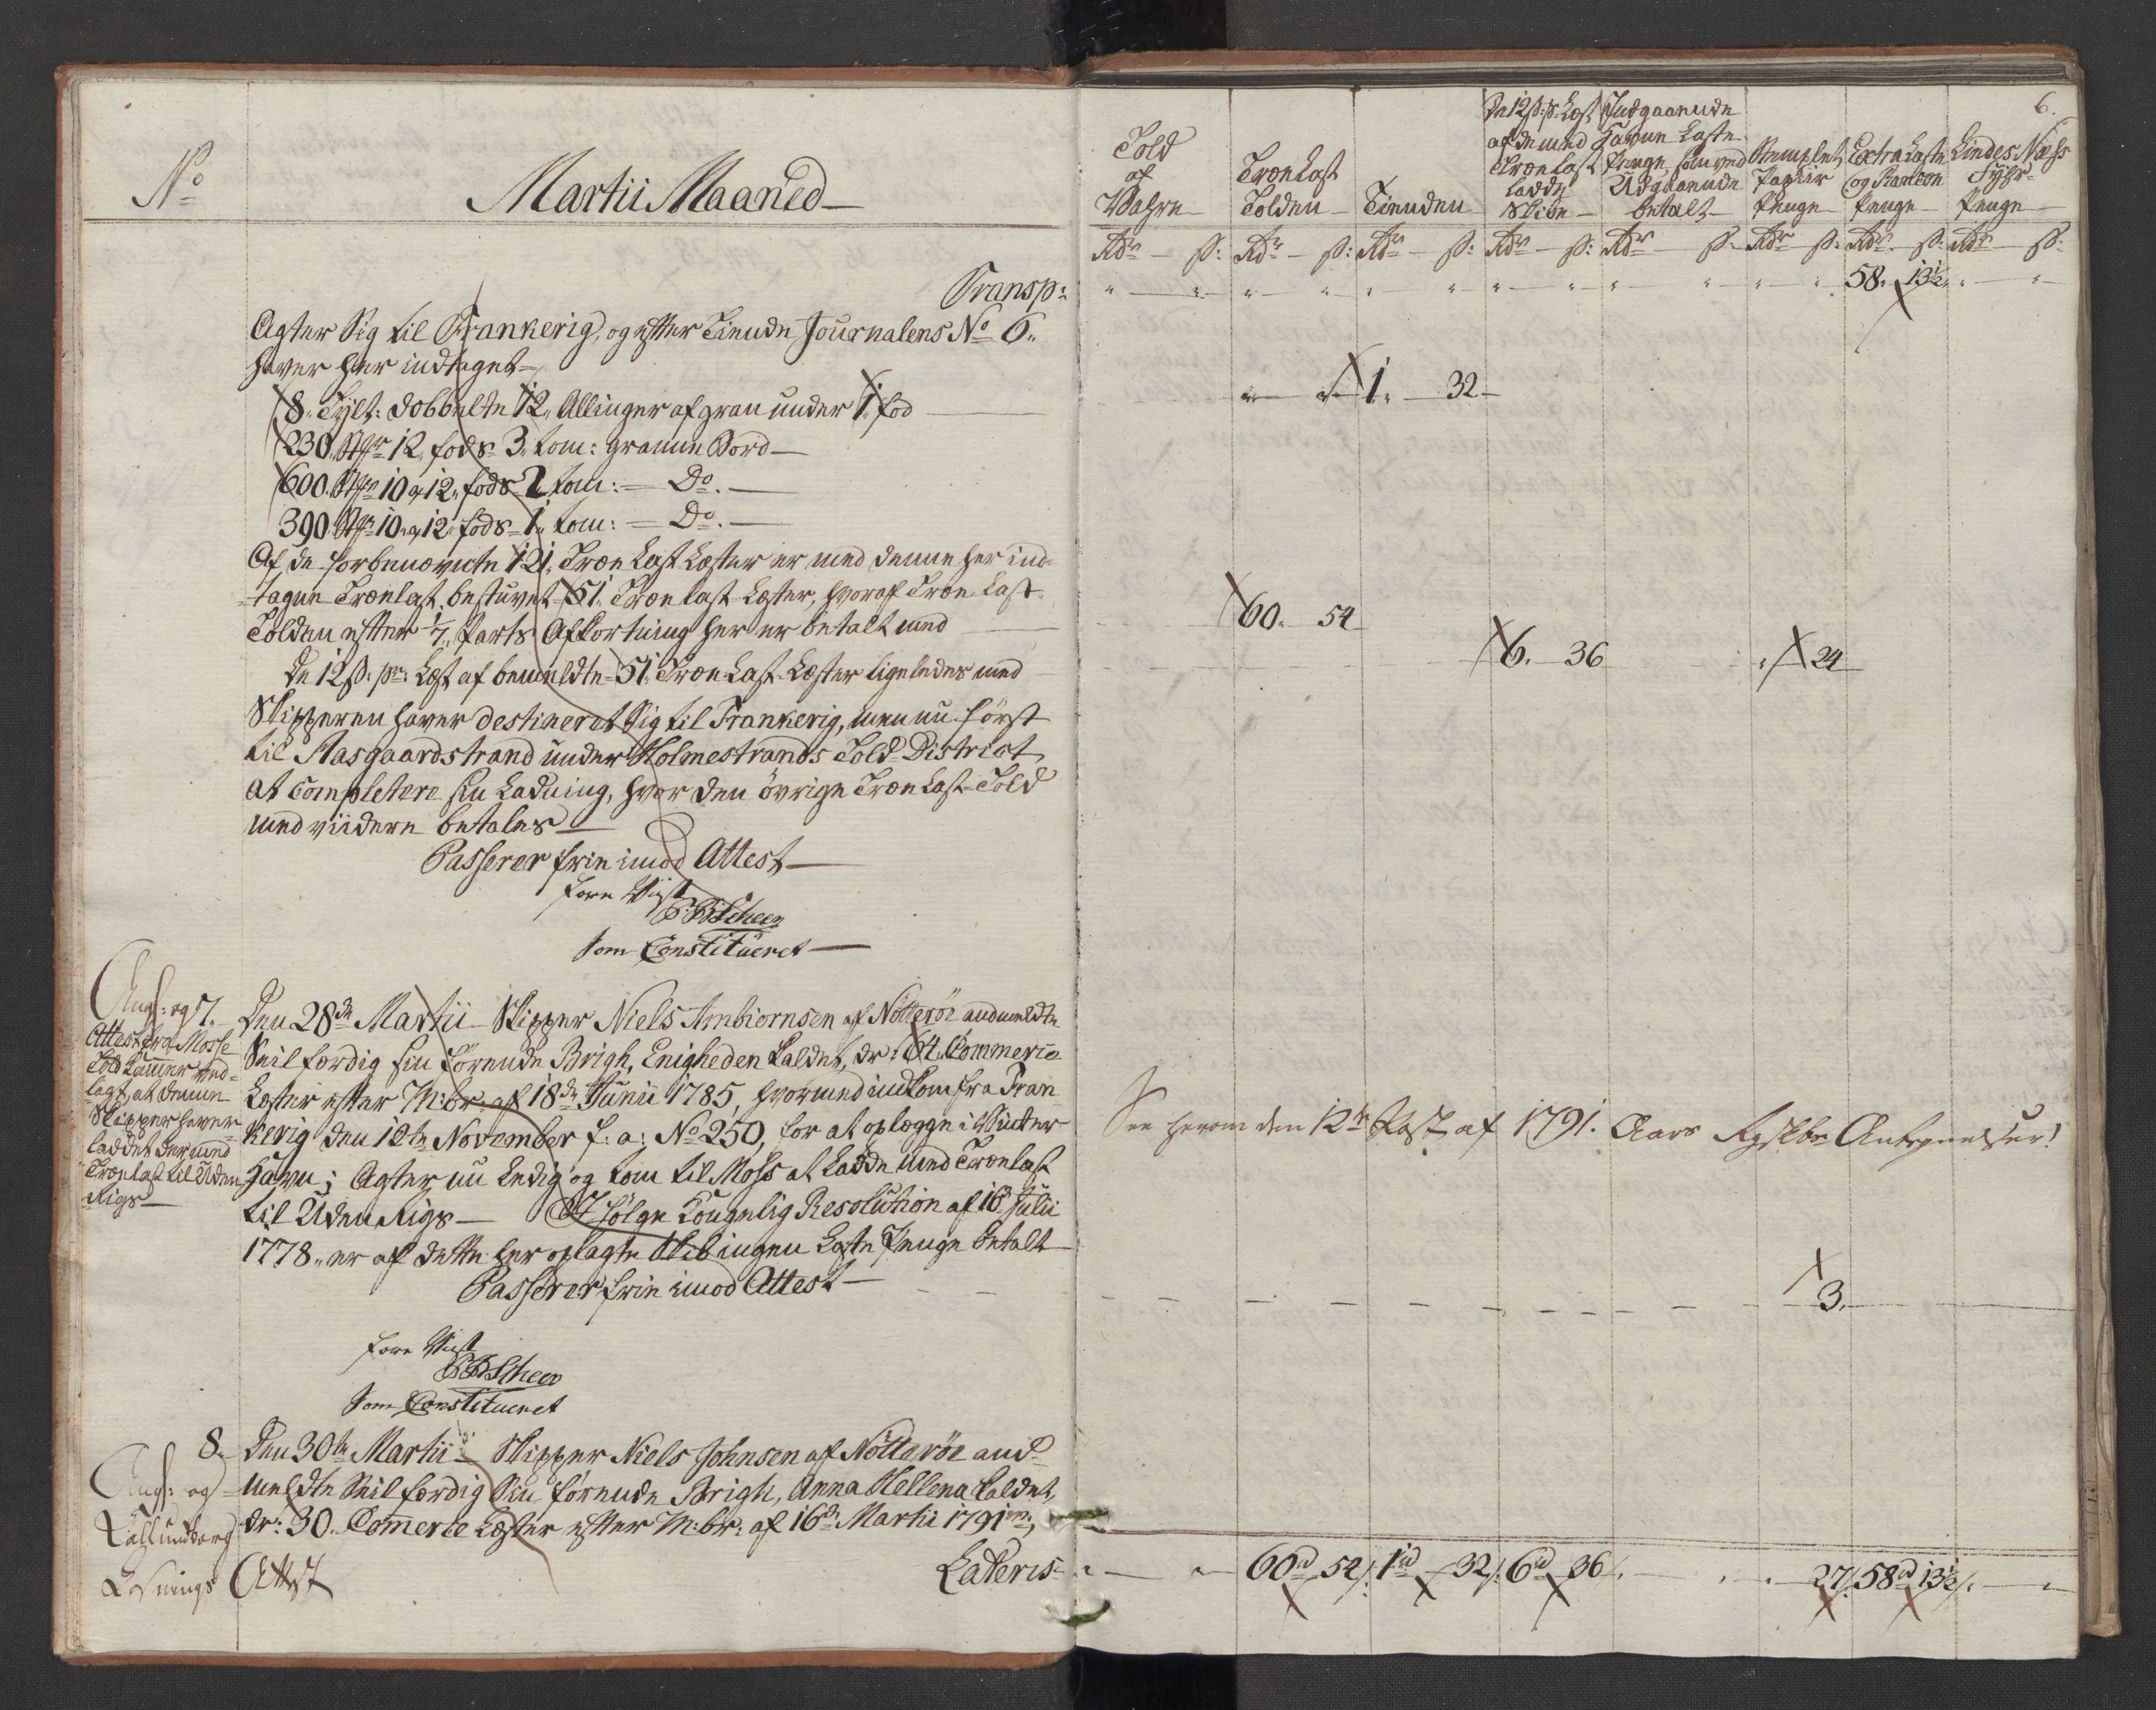 No
Martii Maaned
Transp:
Agter Sig til Frankerig, og efter Tiende Journalens No 6.
haver her indtaget
8. Tylt: dobbelte 12. Allinger af gran under 1. fod
230 Stkr 12. fods 3. tom: granne Bord
600 Stkr 10 a 12. fods 2 tom: Do.
390 Stkr 10 a 12. fods 1. tom: Do.
Af de forbenævnte 121. Træe Last Læster er med denne her ind-
tagne Trælast bestuvet 51. Trælast Læster, hvoraf Træe Last
Tolden efter 1/7. Parts Afkortning her er betalt med
De 12 s: pr: Læst af bemeldte 51. Træe Last Læster ligeledes med
Skipperen haver destineret Sig til Frankerig, men nu först
til Aasgaardstrand under Holmestrands Told District
at completere sin Ladning, hvor den övrige Træe Last Told
med viidere betales
Passerer frie imod Attest
fore Viist
som Constitueret
Angf: og
Attest fra Mosse
Told Kammer ved-
lagt, at denne
Skipper haver
laddet der med
Trælast til Uden
Rigs
7.
Den 28de Martii Skipper Niels Ambiornsen af Nötteröe andmeldte
Seil færdig sin förende Brigh, Enigheden kaldet, dr: 64. Commerce
Læster efter M:br: af 18de Junii 1785, hvormed indkom fra Fran
kerig den 12te November f: a: No 250, for at oplægge i Vinter
Havn; Agter nu ledig og tom til Moss at Ladde med Trælast
til Uden Rigs — I fölge Kongelig Resolution af 16de Julii
1778. er af dette her oplagte Skib ingen Læste Penge betalt
Passerer frie imod Attest
fore Viist
som Constitueret
8.
Angf: og
Kallundborg
Losnings Attest
Den 30te Martii Skipper Niels Johnsen af Nötteröe and-
meldte Seil færdig Sin förende Brigh, Anna Hellena kaldet,
dr: 30. Commerce Læster efter M:br: af 16de Martii 1791
Lateris
6.
Told
af
Vahre
Træe Last
Tolden
Tienden
De 12 s: pr Læst
af de med
Træe Last
ladde
Skibe
Indgaaende
Havne Laste
Penge, som ved
Udgaaende
betalt
Stemplet
Papiir
Penge
Extra Laste
og Rantzon
Penge
Lindes Næss
Fyhr-
Penge
Rdr s: Rdr s: Rdr s: Rdr s: Rdr s: Rdr s: Rdr s: Rdr s:
58. 13½
1. 32
60. 54
6. 36
24
See herom den 12te Post af 1791. Aars Antegnelser!
3.
60rd 54 1rd 32 6rd 36 27 58rd 13½